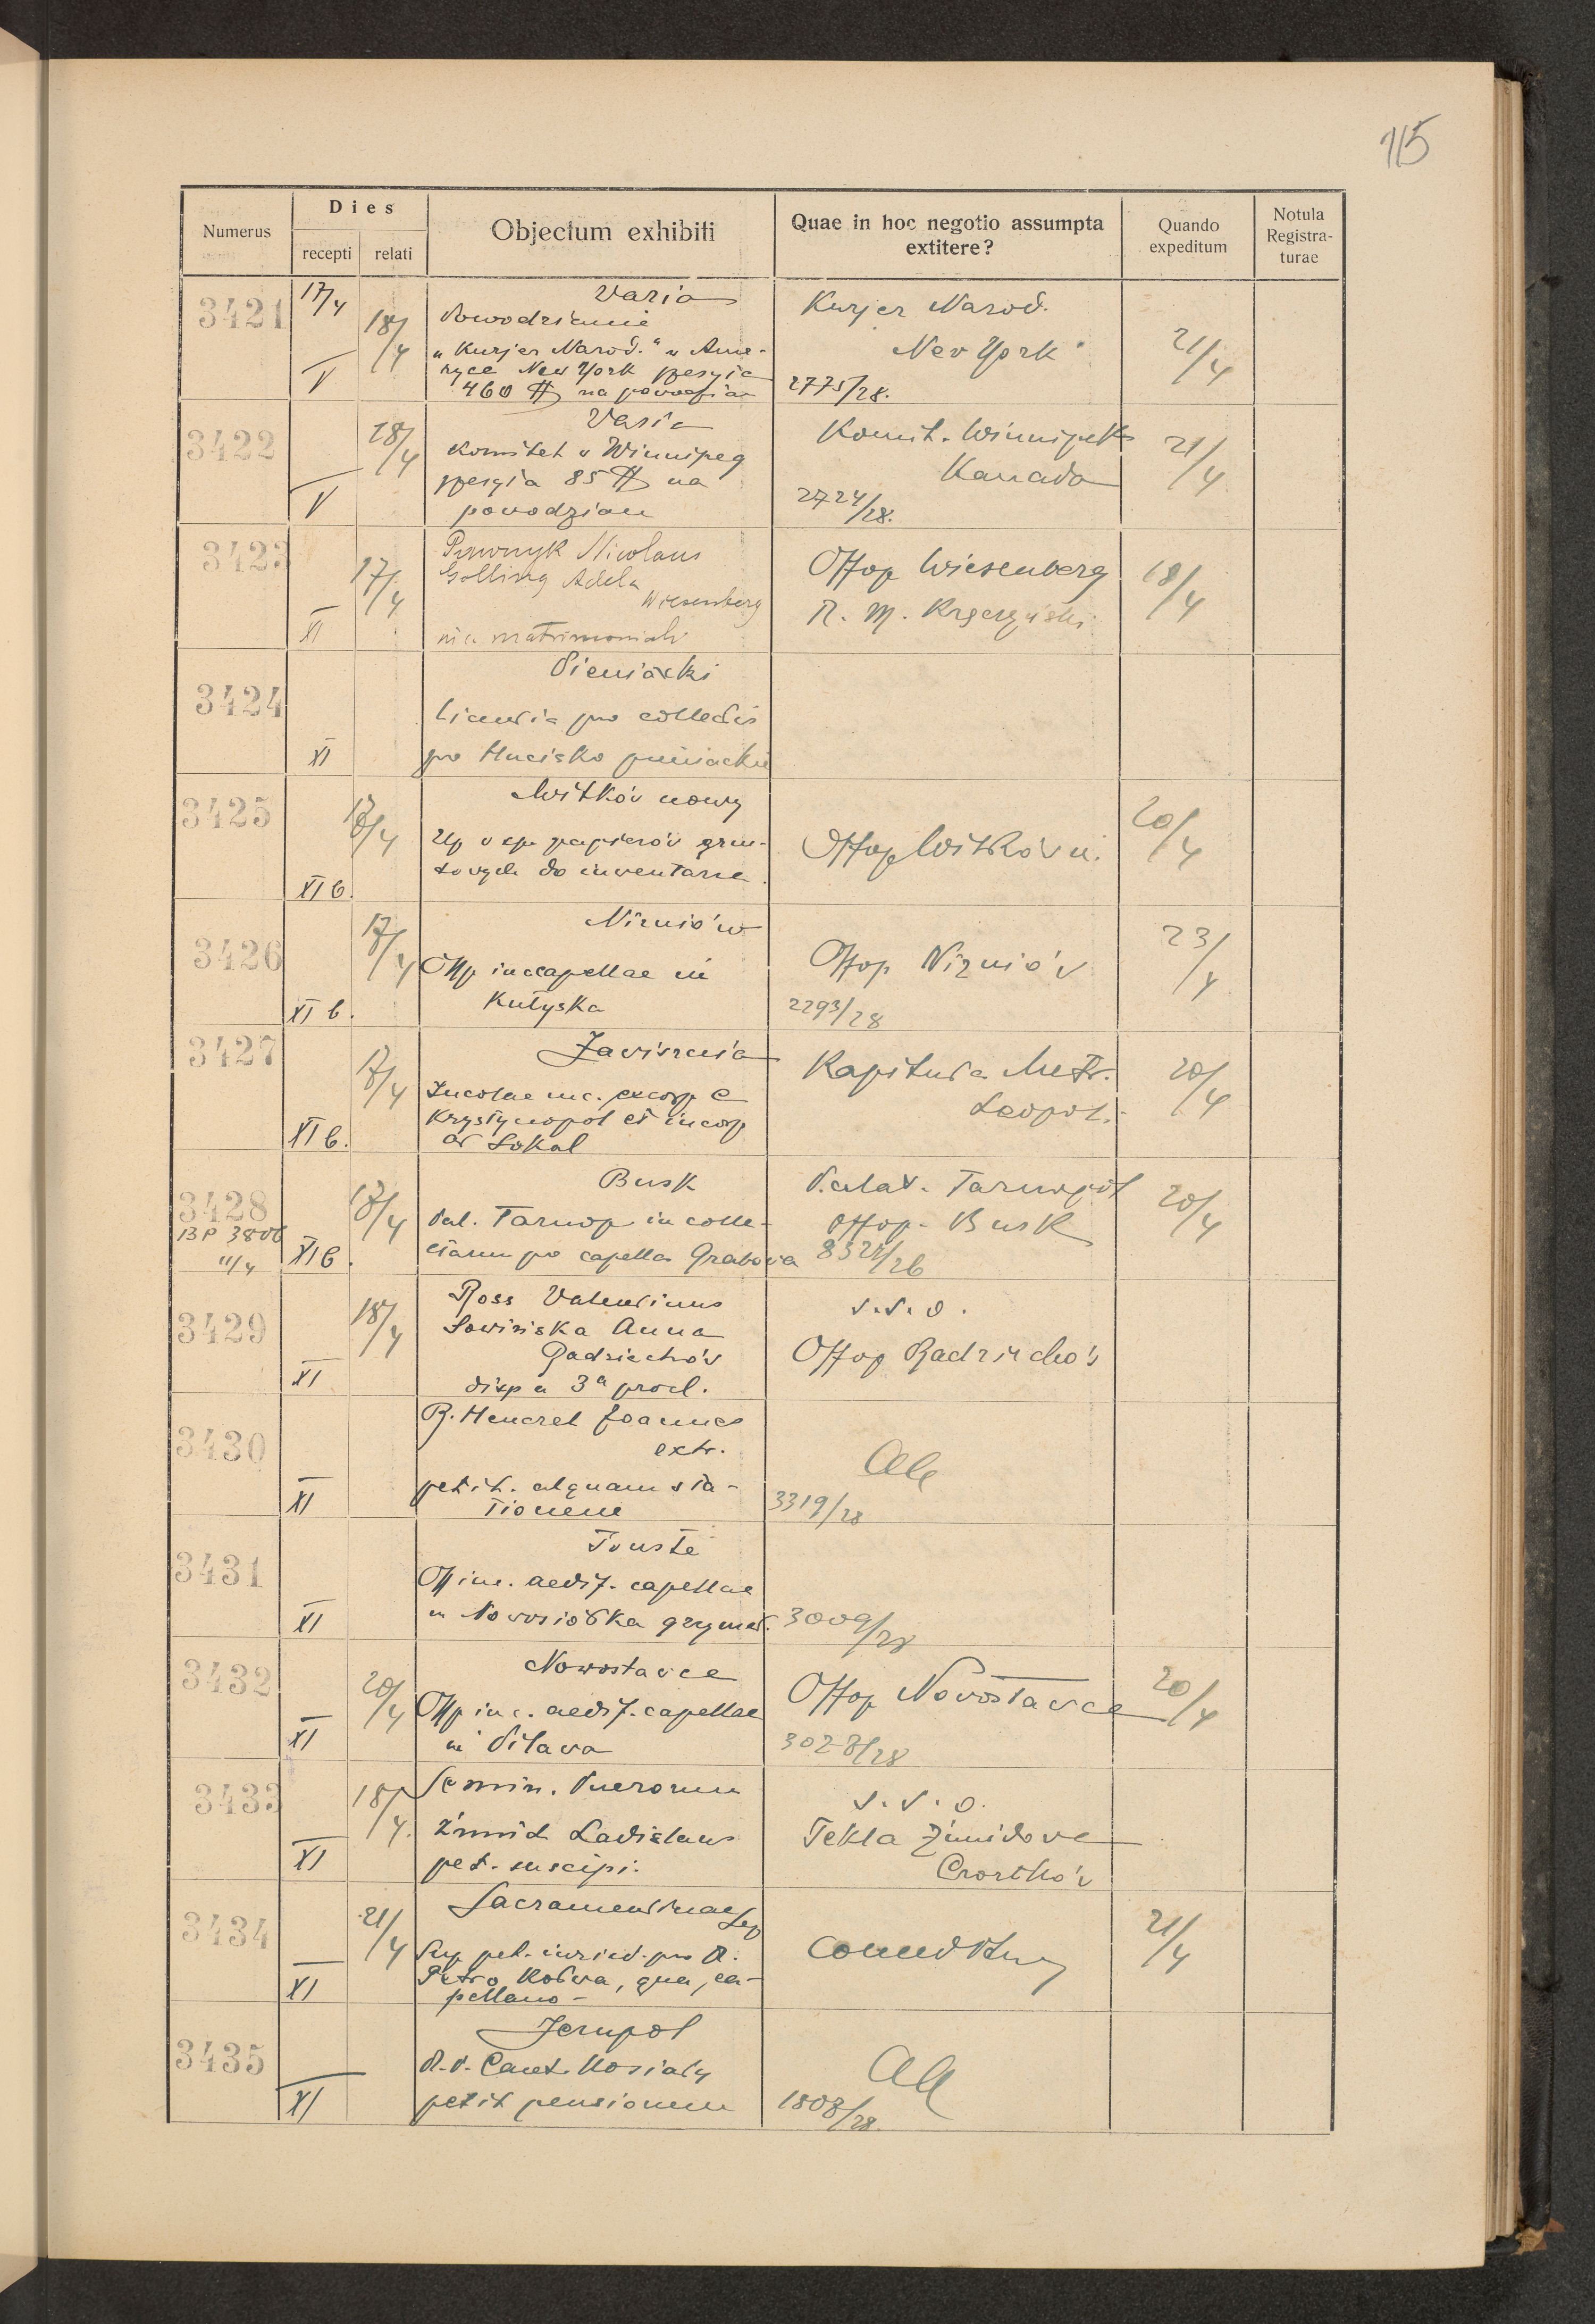 115
Numerus
Dies
recepti
relati
Objectum exhibiti
Quae in hoc negotio assumpta
extitere?
Quando
expeditum
Notula
Registra-
turae
3421
17/4
18/4
V
Varia
Powodzianie
„Kurjer Narod." w Ame-
ryce New York
460 $ na
Kurjer Narod.
New York
2775/28.
21/4
3422
18/4
V
Varia
Komitet w Winnipeg
85 $ na
powodzian
Komit. Winnipeg
Kanada
2724/28.
21/4
3423
17/4
XI
Nicolaus
Golling Adela
Wiesenberg
matrimoniali
Offop Wiesenberg
R. M.
18/4
3424
XI
Pieniacki
Licentia pro collectis
pro Hucisko pieniackie
3425
18/4
XI b.
Witków nowy
papierów grun-
towych do inventarza
Offop Witków n.
20/4
3426
18/4
XI b.
Niżniów
Offp inc capellae in
Kutyska
Offop Niżniów
2293/28
23/4
3427
18/4
XI b.
Zawisznia
Incolae inc. excorp e
Krystynopol et incorp
ad Sokal
Kapituła Metr.
Leopol.
20/4
3428
BP 3806
11/4
18/4
XI b.
Busk
Pal. Tarnop in colle-
ctam po capella Grabowa
Palat. Tarnopol
Offop. Busk
8321/26
20/4
3429
18/4
XI
Ross Valentinus
Sowińska Anna
Radziechów
disp a 3ª procl.
s.s.o.
Offop Radziechów
3430
XI
R. Joannes
extr.
petit. alquam sta-
tionem
3319/28
3431
XI
Touste
Off inc. aedif. capellae
in Nowosiółka grzymał.
3009/28
3432
20/4
XI
Nowostawce
Offp inc. aedif. capellae
in Piława
Offop Nowostawce
3028/28
20/4
3433
18/4.
XI
Semin. Puerorum
Żmid Ladislaus
pet. suscipi.
s.s.o.
Tekla Żmidowa
Czortków
3434
21/4
XI
Sacramentinae Leop
Sup pet. iurisd. pro R.
Petro, qua ca-
pellano -
21/4
3435
XI
Jezupol
R.P.
petit pensionem
1808/28.